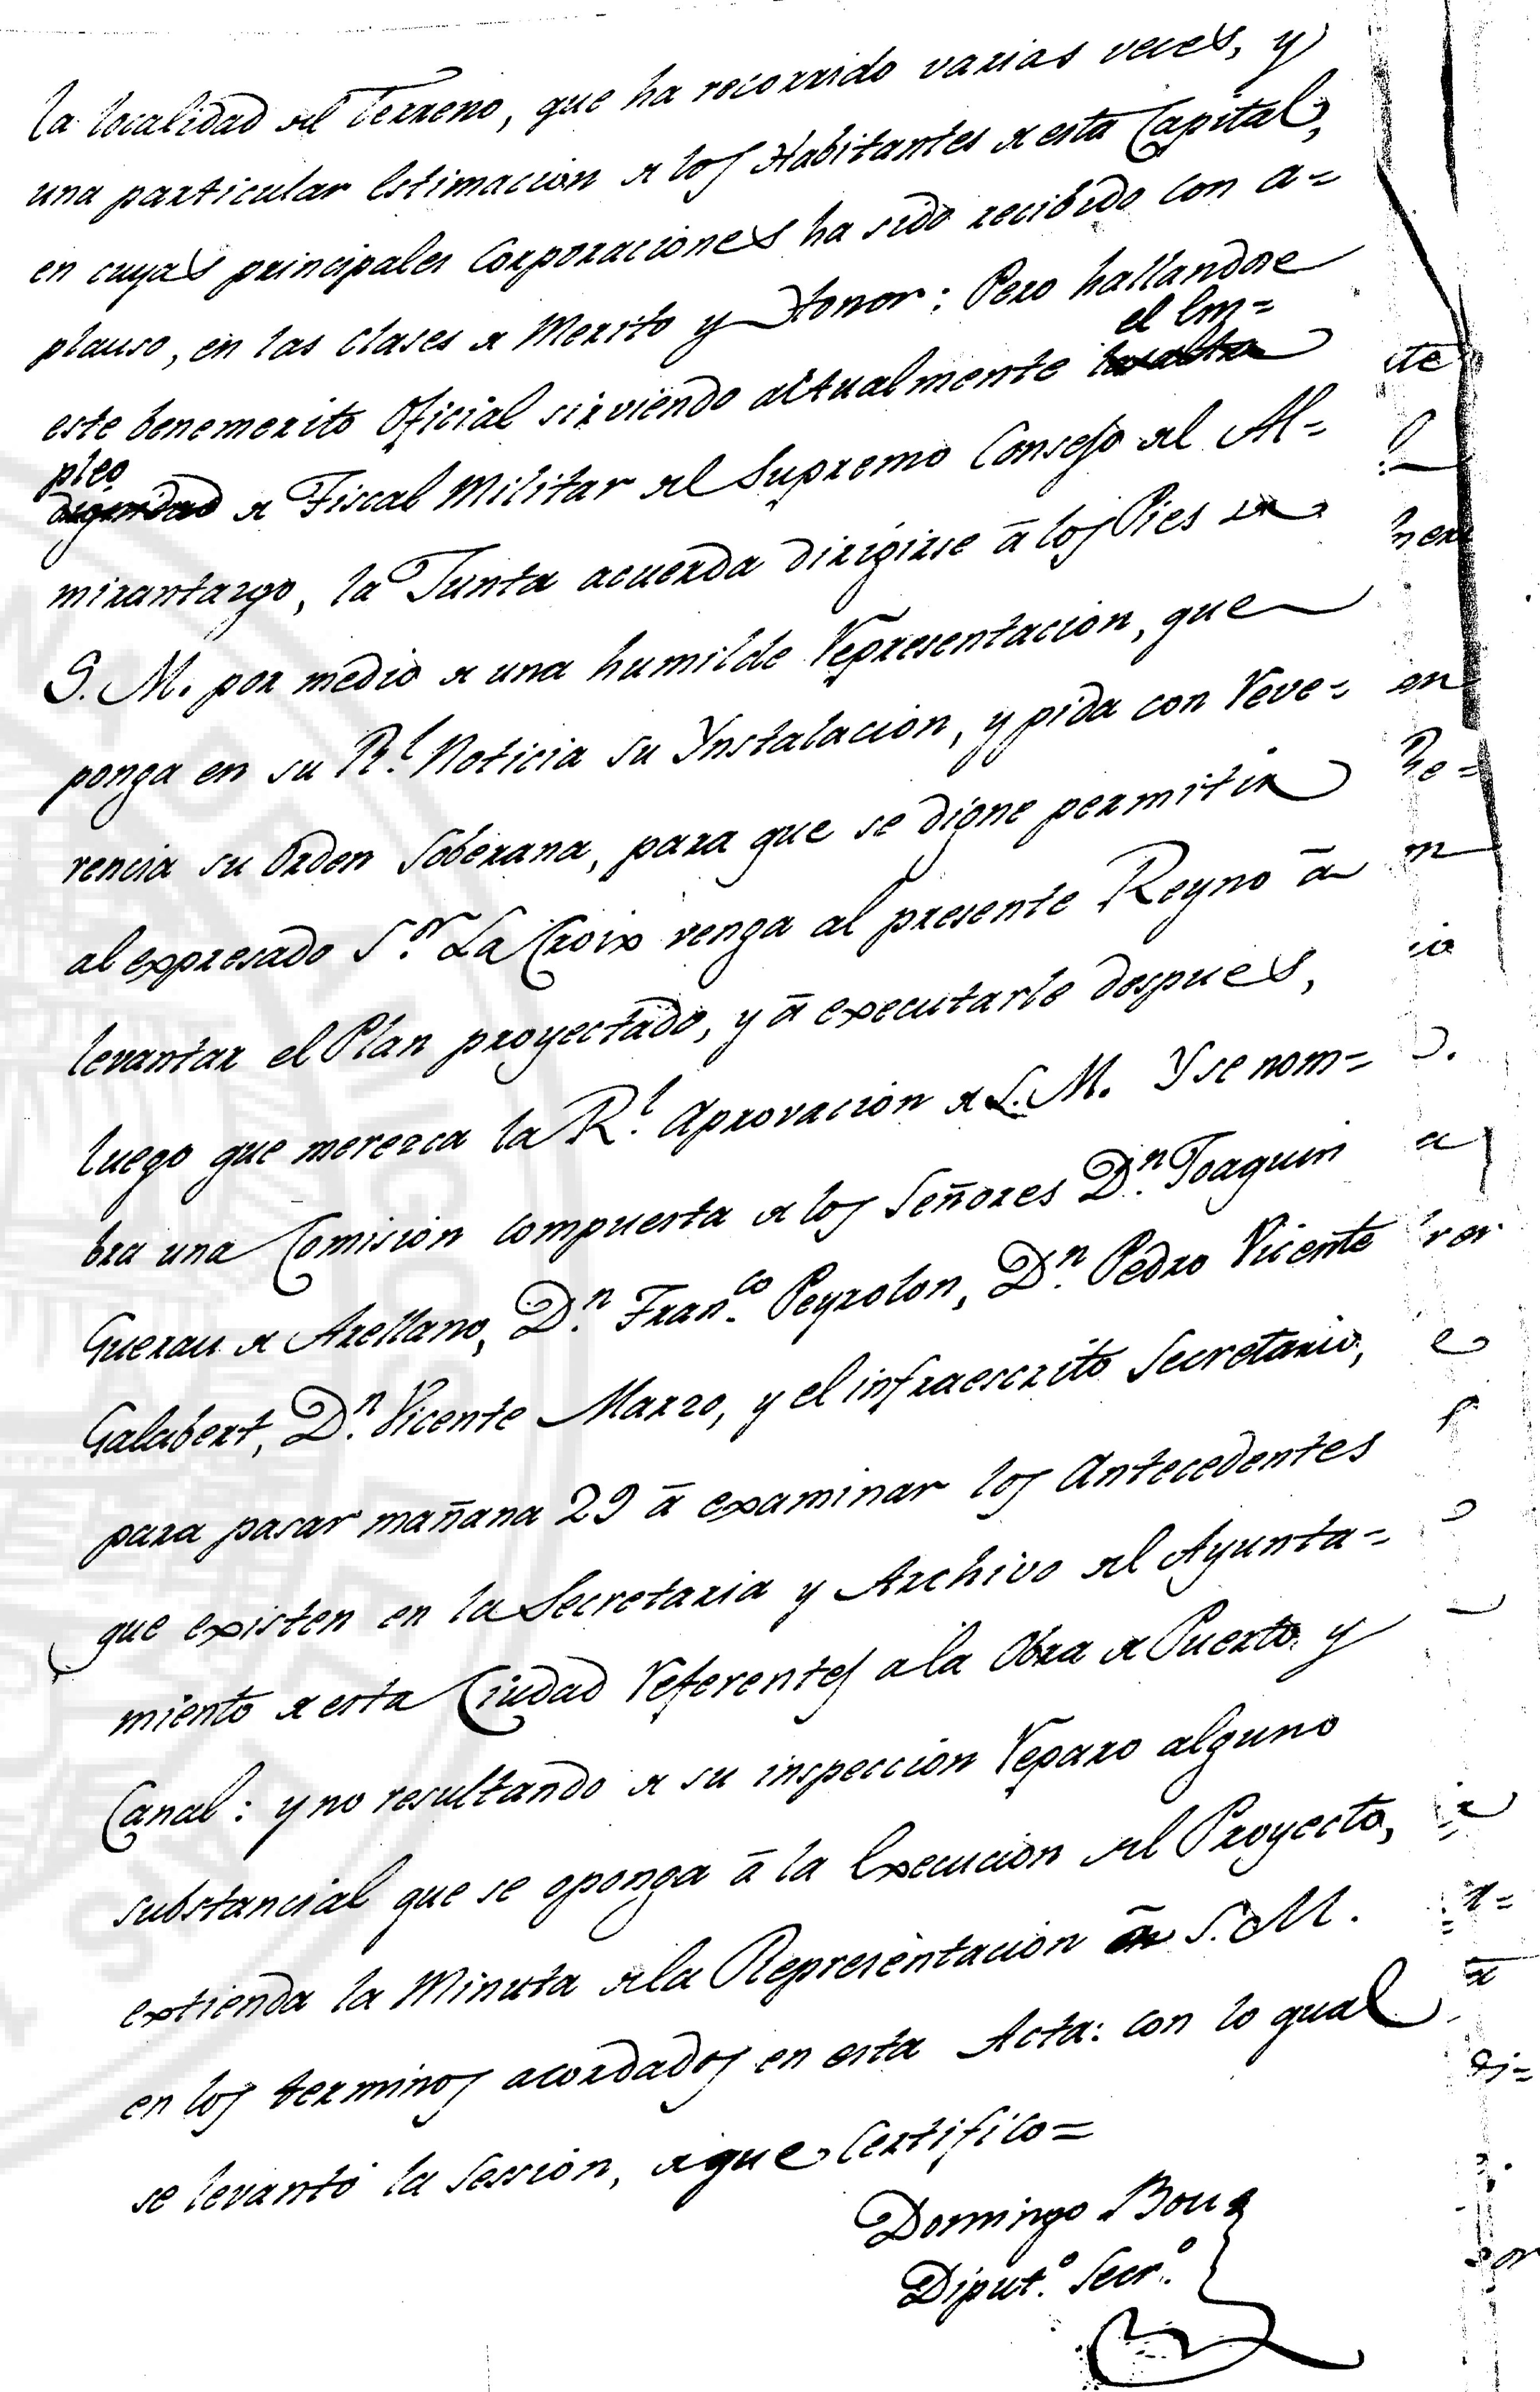 la localidad del Terreno, que ha recorrido varias veces, y
una particular Estimacion de los Habitantes de esta Capital,
en cuyas principales Corporaciones ha sido recibido con a=
plauso, en las clases de Merito y Honor: Pero hallandose
este benemerito Oficial sirviendo actualmente el Em=
pleo de Fiscal Militar del Supremo Consejo del Al=
mirantazgo, la Junta acuerda dirigirse â los Pies de
S. M. por medio de una humilde Representacion, que
ponga en su R.l Noticia su Ynstalacion, y pida con Reve=
rencia su Orden Soberana, para que se digne permitir
al expresado S.or La Croix venga al presente Reyno â
levantar el Plan proyectado, y â executarlo despues,
luego que merezca la R.l Aprovacion de S. M. Y se nom=
bra una Comision compuesta de los Señores D.n Joaquin
Guerau de Arellano, D.n Fran.co Peyrolon, D.n Pedro Vicente
Galabert, D.n Vicente Marzo, y el infraescrito Secretario,
para pasar mañana 29 â examinar los Antecedentes
que existen en la Secretaria y Archivo del Ayunta=
miento de esta Ciudad Referentes a la Obra de Puerto y
Canal: y no resultando de su inspeccion Reparo alguno
substancial que se oponga â la Execucion del Proyecto,
extienda la Minuta de la Representacion â S. M.
en los terminos acordados en esta Acta: con lo qual
se levantó la Session, de que Certifico=
Domingo Bou
Diput.o Secr.o